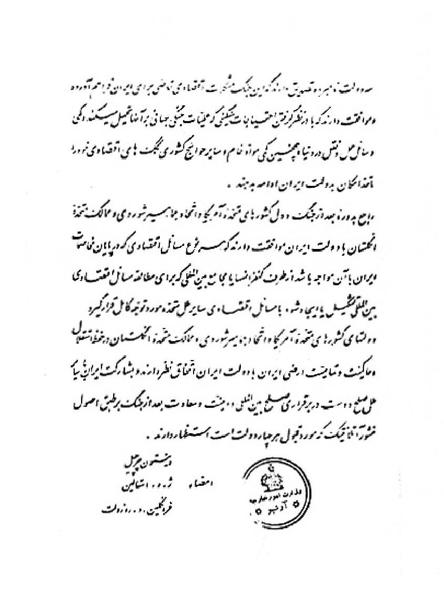 سه دولت نامبرده تصدیق دارند که این جنگ مشکلات اقتصادی خاصی برای ایران فراهم آورده
و موافقت دارند که با در نظر گرفتن احتیاجات سنگینی که عملیات جنگی جهانی بر آنها تحمیل میکند و کمی
وسائل حمل و نقل در دنیا و همچنین کمی مواد خام و سایر حوائج کشوری کمک های اقتصادی خود را
تا حد امکان بدولت ایران ادامه بدهند.
راجع بدوره بعد از جنگ دول کشورهای متحده آمریکا و اتحاد جماهیر شوروی و ممالک متحده
انگلستان با دولت ایران موافقت دارند که هر نوع مسائل اقتصادی که در پایان مخاصمات
ایران با آن مواجه باشد از طرف کنفرانسها یا مجامع بین المللی که برای مطالعه مسائل اقتصادی
بین المللی تشکیل یا ایجاد شود، با مسائل اقتصادی سایر ملل متحده مورد توجه کامل قرار گیرد
دولتهای کشورهای متحده آمریکا و اتحاد جماهیر شوروی و ممالک متحده انگلستان در حفظ استقلال
و حاکمیت و تمامیت ارضی ایران با دولت ایران اتفاق نظر دارند و بمشارکت ایران با سایر
ملل صلح دوست در برقراری صلح بین المللی و امنیت و سعادت بعد از جنگ بر طبق اصول
منشور آتلانتیک که مورد قبول هر چهار دولت است استظهار دارند.
وینستون چرچیل
امضاء ژوزف استالین
فرانکلین د. روزولت
وزارت امور خارجه
آرشیو